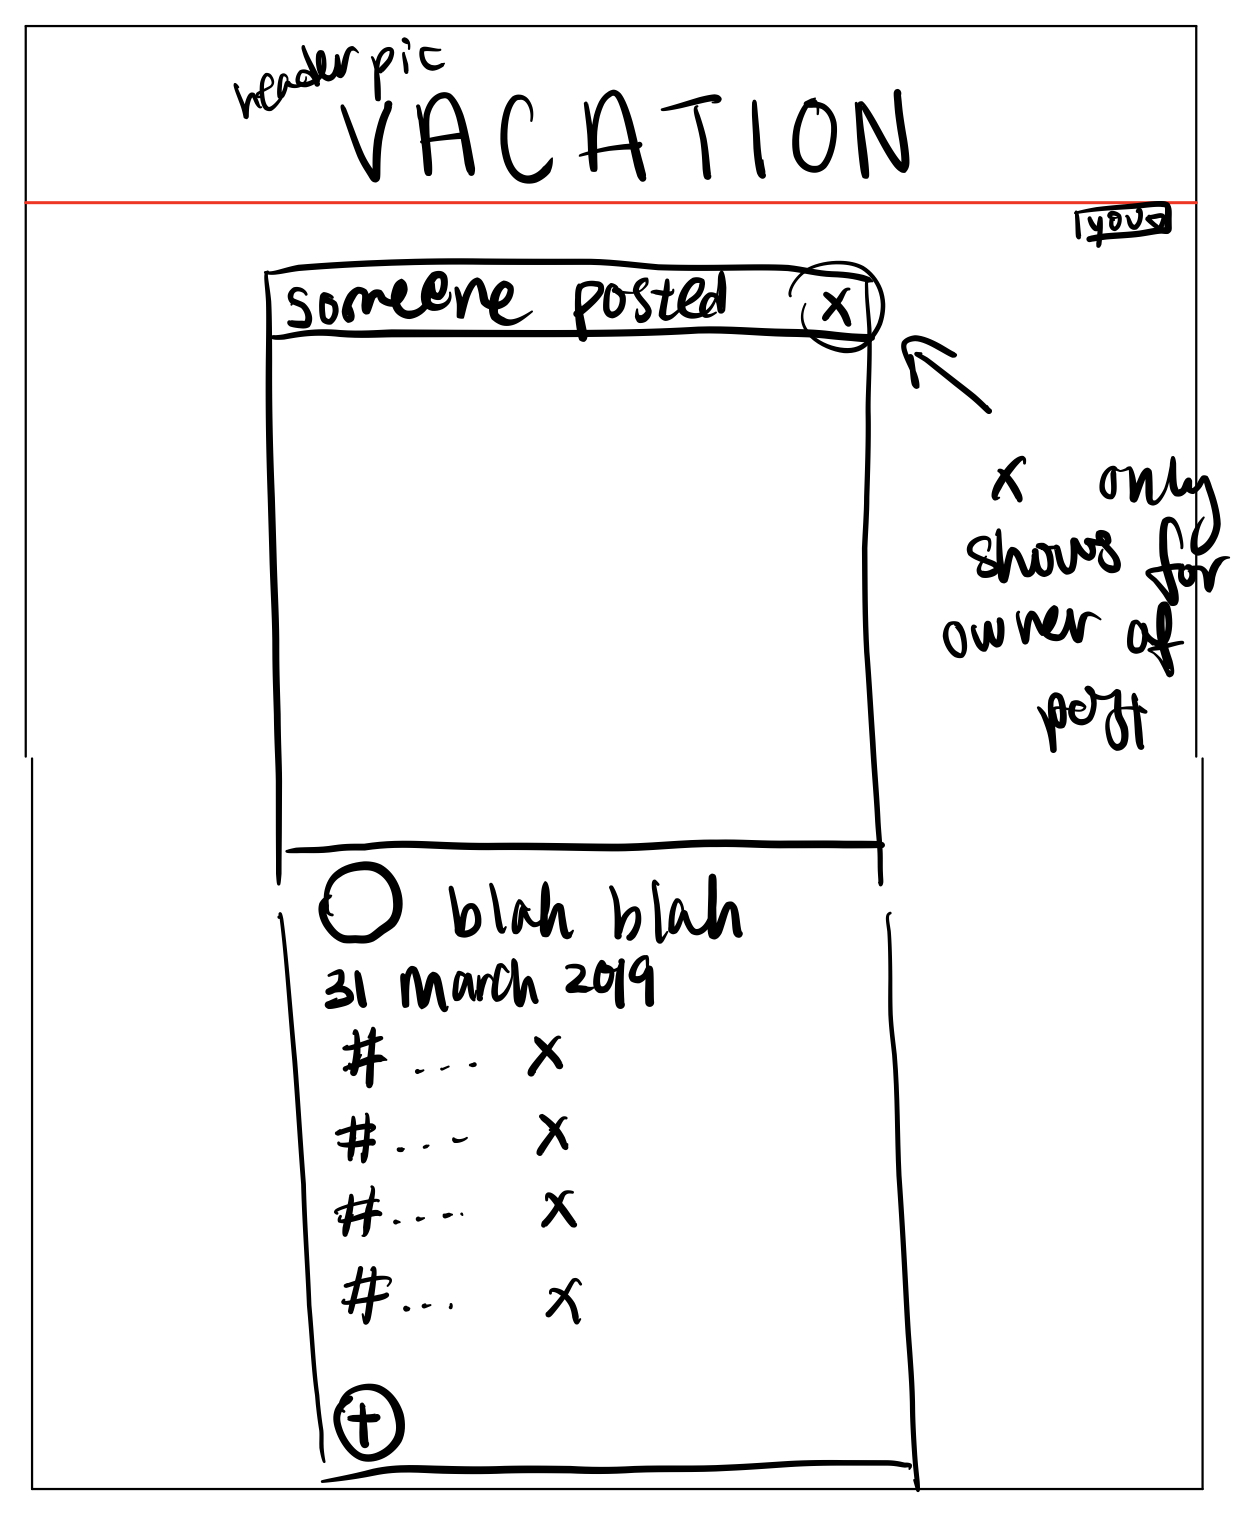 header pic
VACATION
you
someone posted X
X only
shows for
owner of
post
blah blah
31 march 2019
# .... X
# .... X
# .... X
# .... X
+